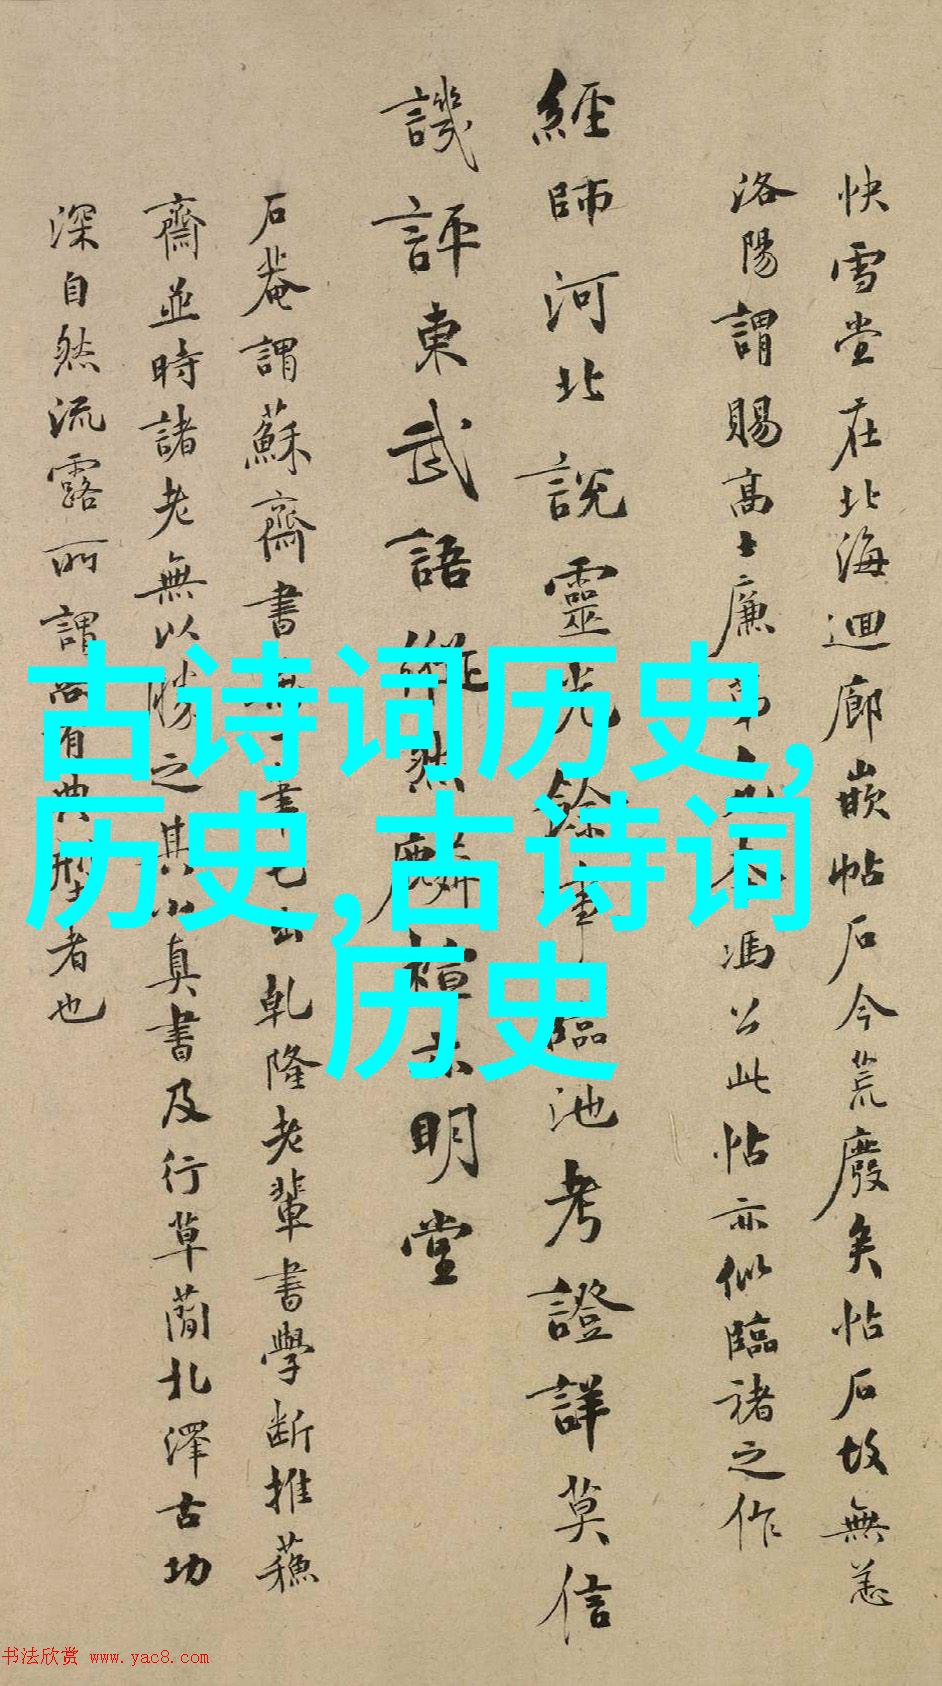 快雪堂在北海迴廊嵌帖石今荒廢矣帖石故無恙
洛陽謂賜高士廉
馮公此帖亦似臨諸之作
經師河北說靈光餘事臨池考證詳莫信
譏評東武語縱然麟楦亦明堂
石菴謂蘇齋書
乾隆老輩書學斷推蘇
齋並時諸老無以勝之其小真書及行草蘭北澤古功
深自然流露所謂尚有典型者也
古诗词历史,
历史,古诗词
历史
书法欣赏 www.yac8.com